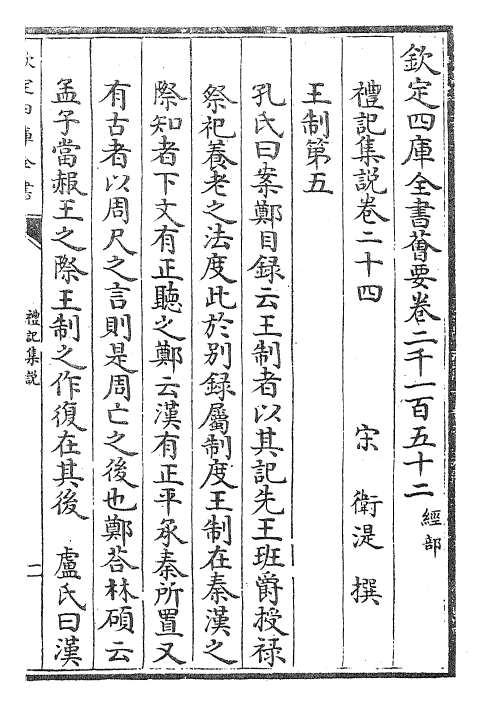 欽定四庫全書薈要卷二千一百五十二
經部
禮記集說卷二十四
宋 衛湜 撰
王制第五
孔氏曰案鄭目錄云王制者以其記先王班爵授祿
祭祀養老之法度此於別錄屬制度王制在秦漢之
際知者下文有正聽之鄭云漢有正平承秦所置又
有古者以周尺之言則是周亡之後也鄭荅林碩云
孟子當赧王之際王制之作復在其後 盧氏曰漢
欽定四庫全書
禮記集説